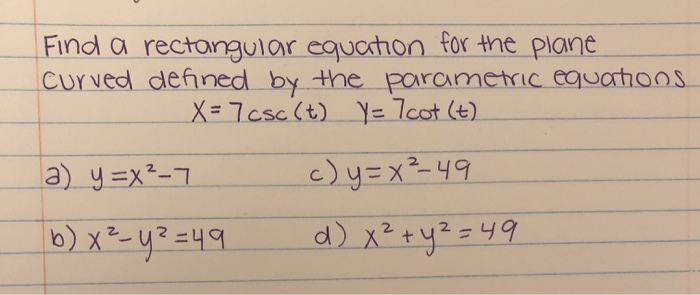 Find a rectangular equation for the plane
curved defined by the parametric equations
X=7csc(t) Y=7cot(t)
a) y=x²-7 c) y=x²-49
b) x²-y²=49 d) x²+y²=49